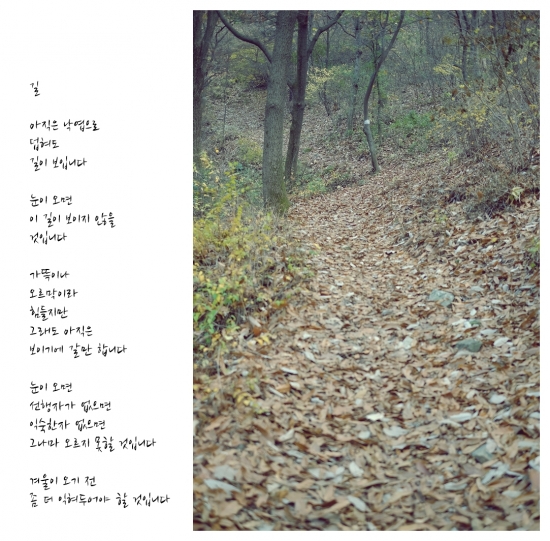 길
아직은 낙엽으로
덥혀도
길이 보입니다
눈이 오면
이 길이 보이지 않을
것입니다
가뜩이나
오르막이라
힘들지만
그래도 아직은
보이기에 갈만 합니다
눈이 오면
선행자가 없으면
익숙한자 없으면
그나마 오르지 못할 것입니다
겨울이 오기 전
좀 더 익혀두어야 할 것입니다